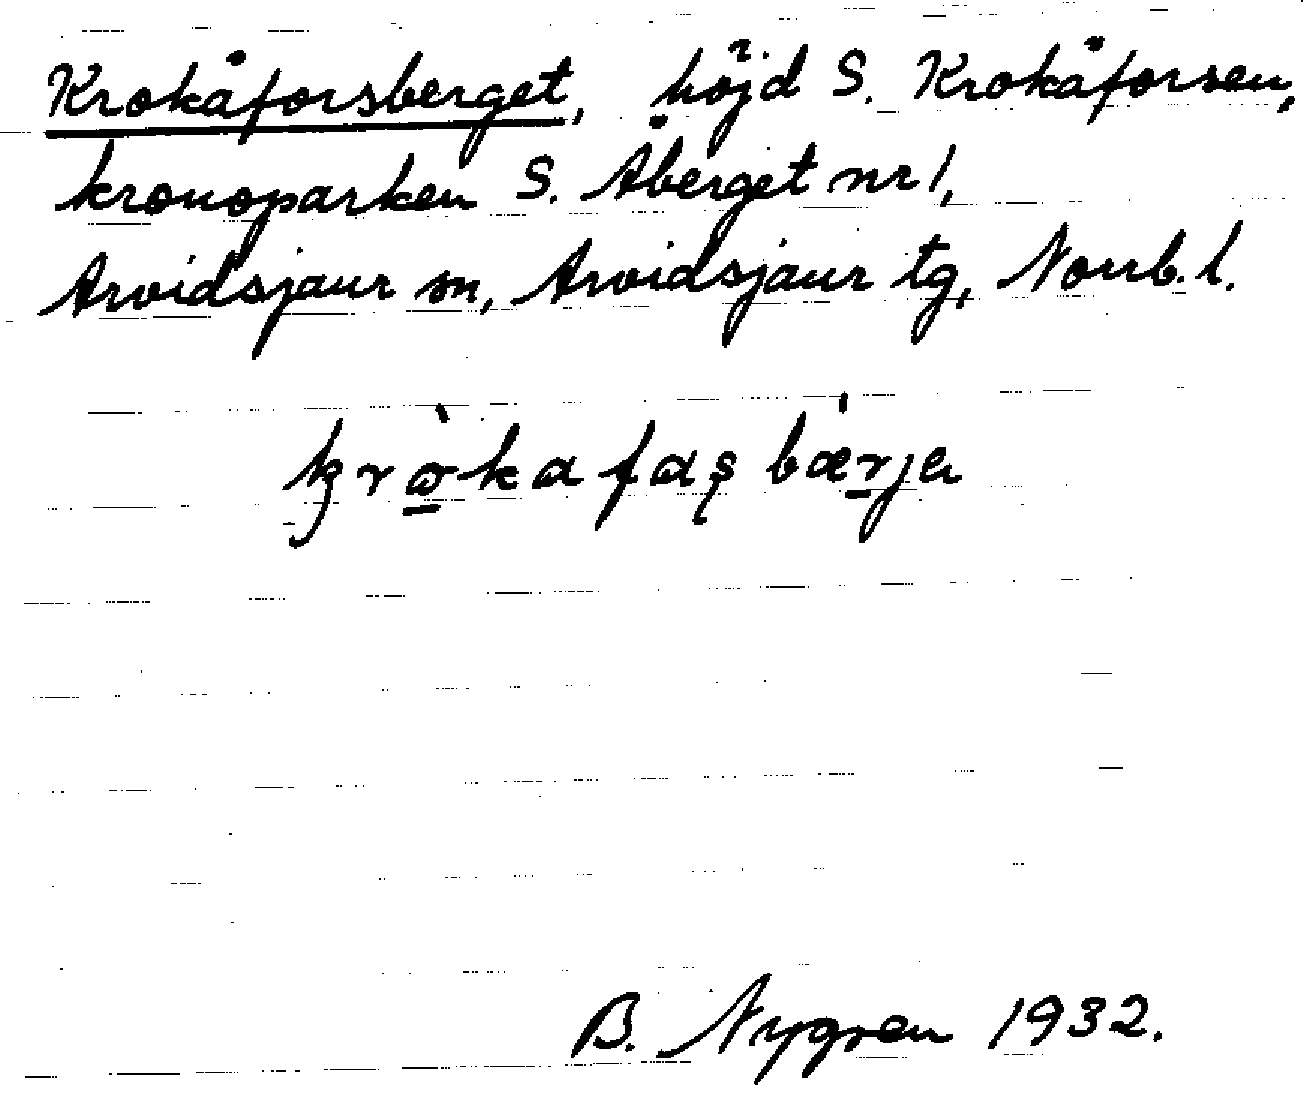 Krokåforsberget, höjd S. Krokåforsen,
kronoparken S. Åberget nr 1,
Arvidsjaur sn, Arvidsjaur tg, Norrb. l.
B. Nygren 1932.